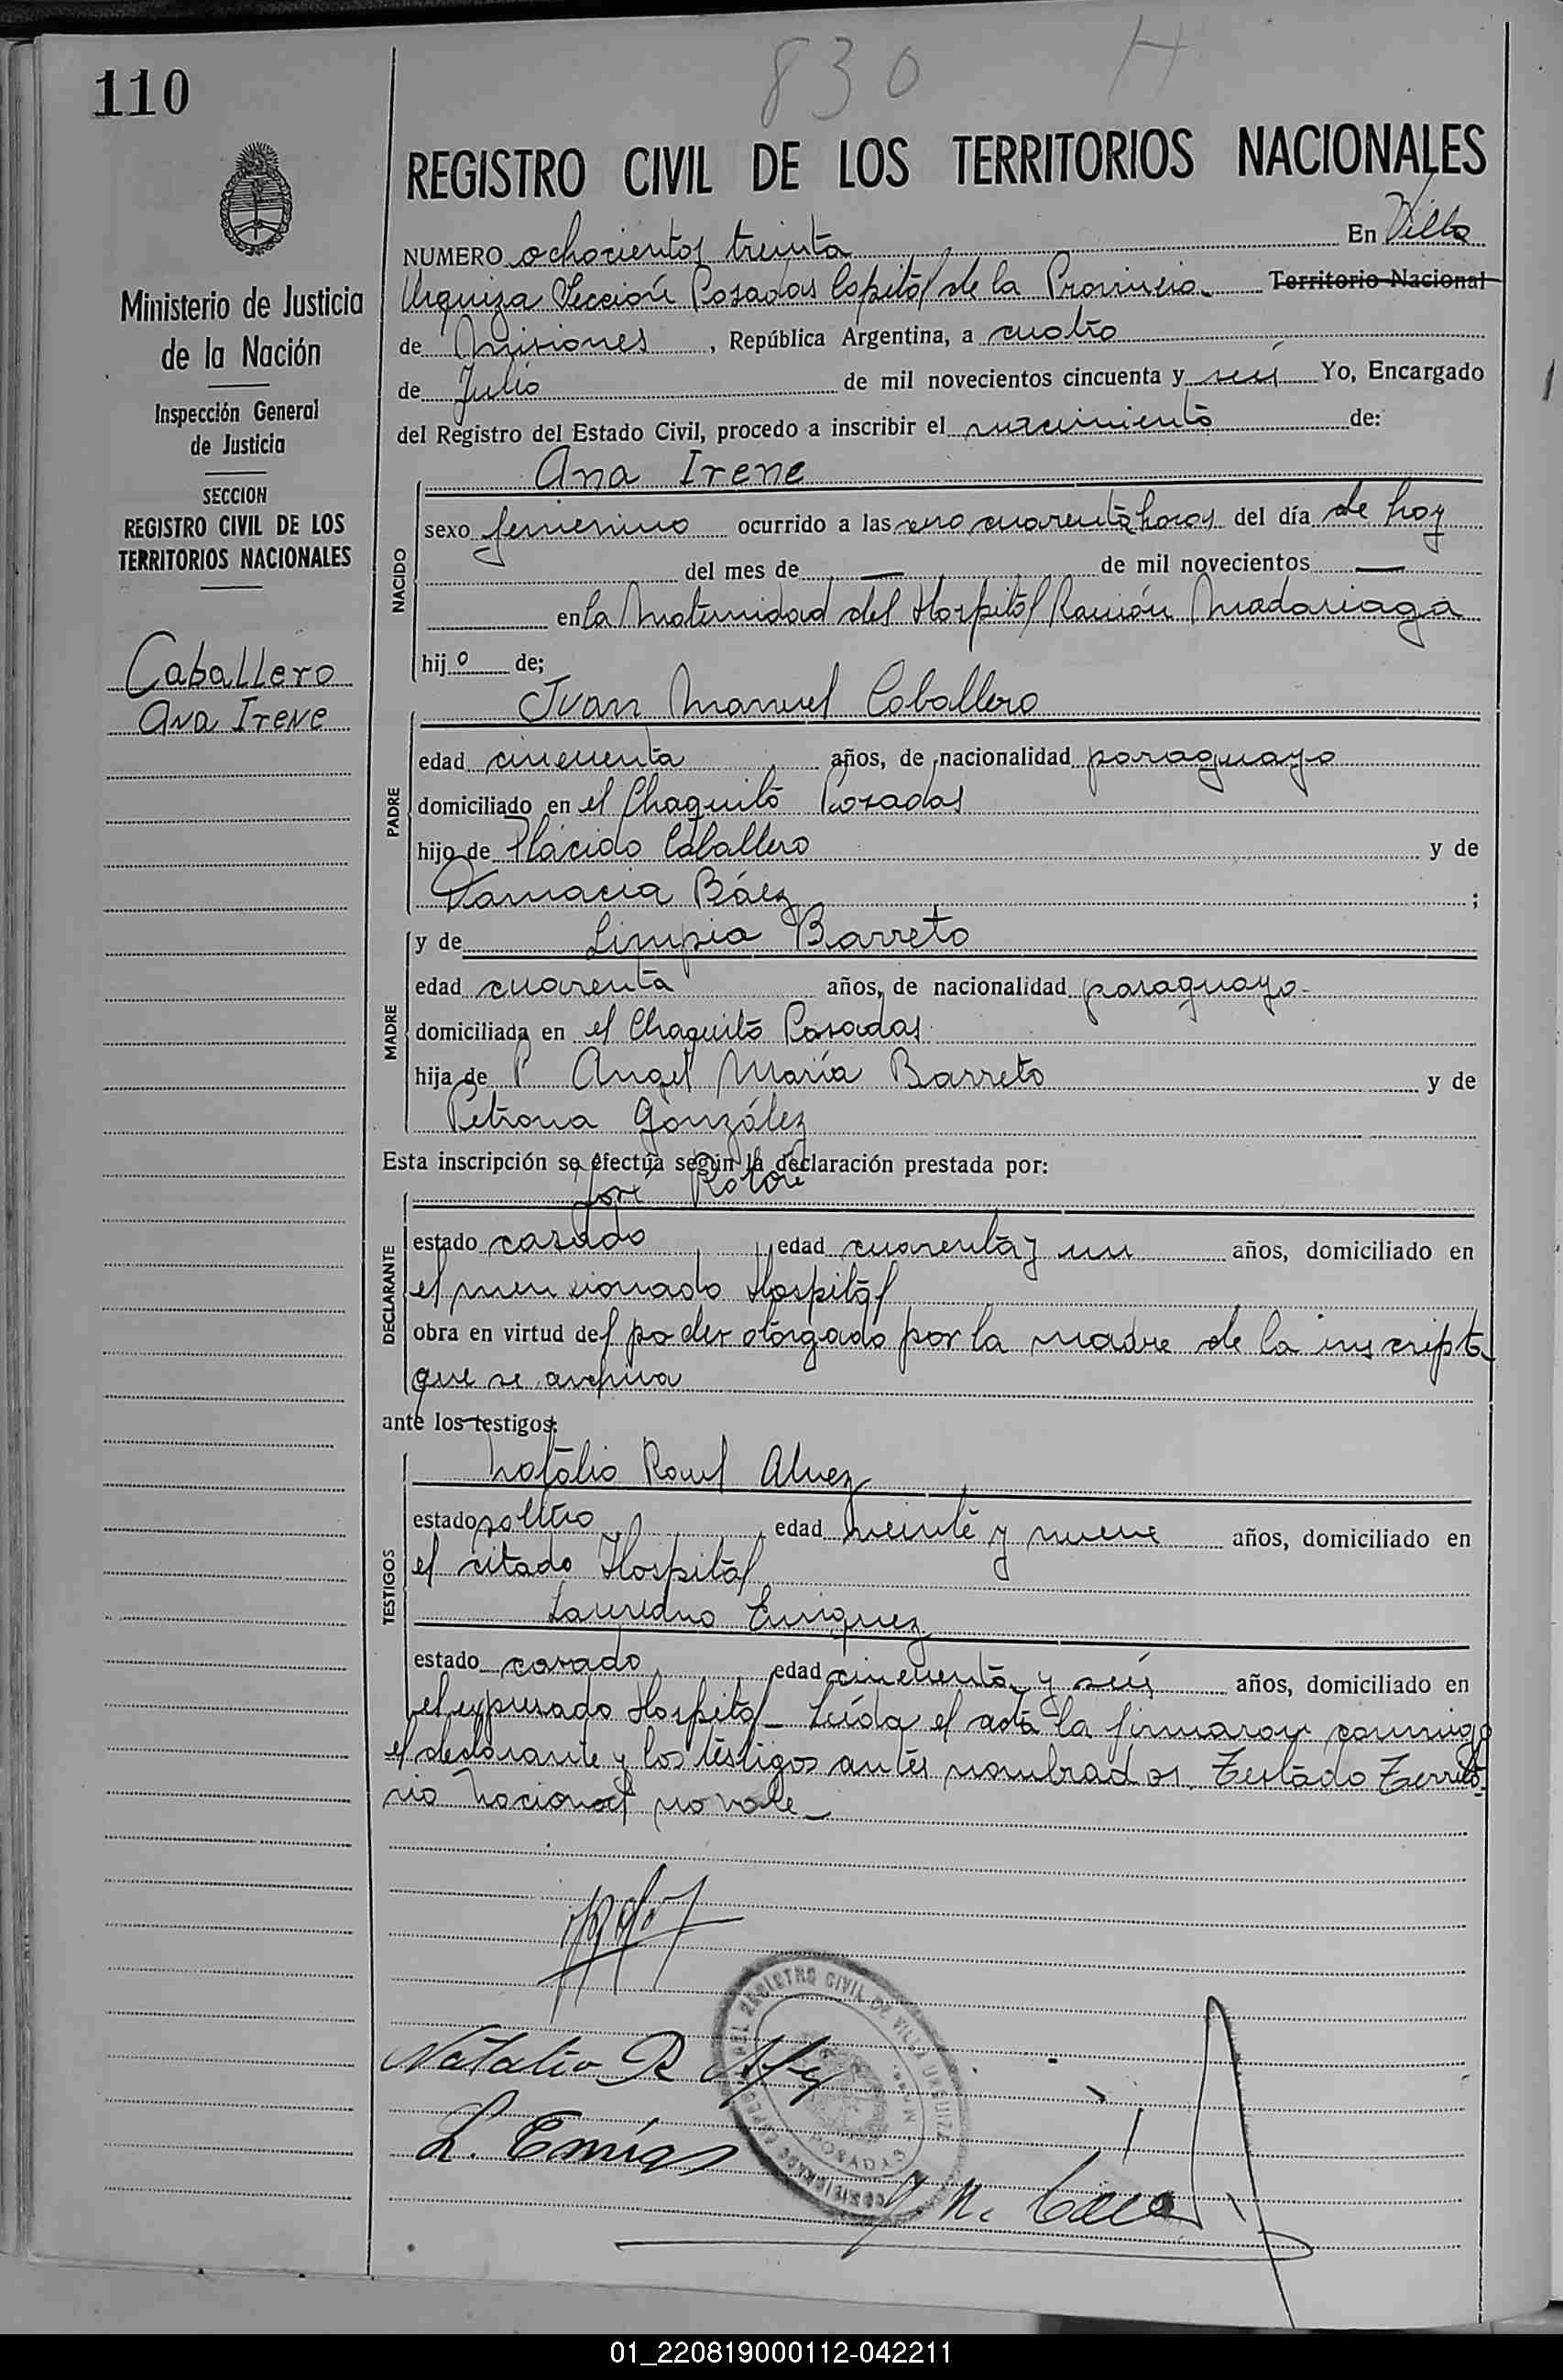 830 H
110
REGISTRO CIVIL DE LOS TERRITORIOS NACIONALES
NUMERO ochocientos treinta En Villa
Urquiza Sección Posadas Capital de la Provincia Territorio Nacional
de Misiones, República Argentina, a cuatro
de Julio de mil novecientos cincuenta y seis Yo, Encargado
del Registro del Estado Civil, procedo a inscribir el nacimiento de:
Ministerio de Justicia
de la Nación
Inspección General
de Justicia
SECCION
REGISTRO CIVIL DE LOS
TERRITORIOS NACIONALES
Caballero
Ana Irene
NACIDO
Ana Irene
sexo femenino ocurrido a las cero cuarenta horas del día de hoy
del mes de — de mil novecientos —
en la Maternidad del Hospital Ramón Madariaga
hij o de;
PADRE
Juan Manuel Caballero
edad cincuenta años, de nacionalidad paraguayo
domiciliado en el Chaquito Posadas
hijo de Plácido Caballero y de
Damacia Báez ;
MADRE
y de Limpia Barreto
edad cuarenta años, de nacionalidad paraguayo
domiciliada en el Chaquito Posadas
hija de Angel María Barreto y de
Petrona González
Esta inscripción se efectúa según la declaración prestada por:
DECLARANTE
José
estado casado edad cuarenta y un años, domiciliado en
el mencionado Hospital
obra en virtud del poder otorgado por la madre de la inscripta
que se archiva
ante los testigos:
TESTIGOS
Natalio Raul Alvez
estado soltero edad veinte y nueve años, domiciliado en
el citado Hospital
Laureano Enriquez
estado casado edad cincuenta y seis años, domiciliado en
el expresado Hospital_ Leída el acta la firmaron conmigo
el declarante y los testigos antes nombrados. Testado Territo-
rio Nacional no vale_
Natalio R
L.
REGISTRO CIVIL DE VILLA URQUIZA
POSADAS
01_220819000112-042211